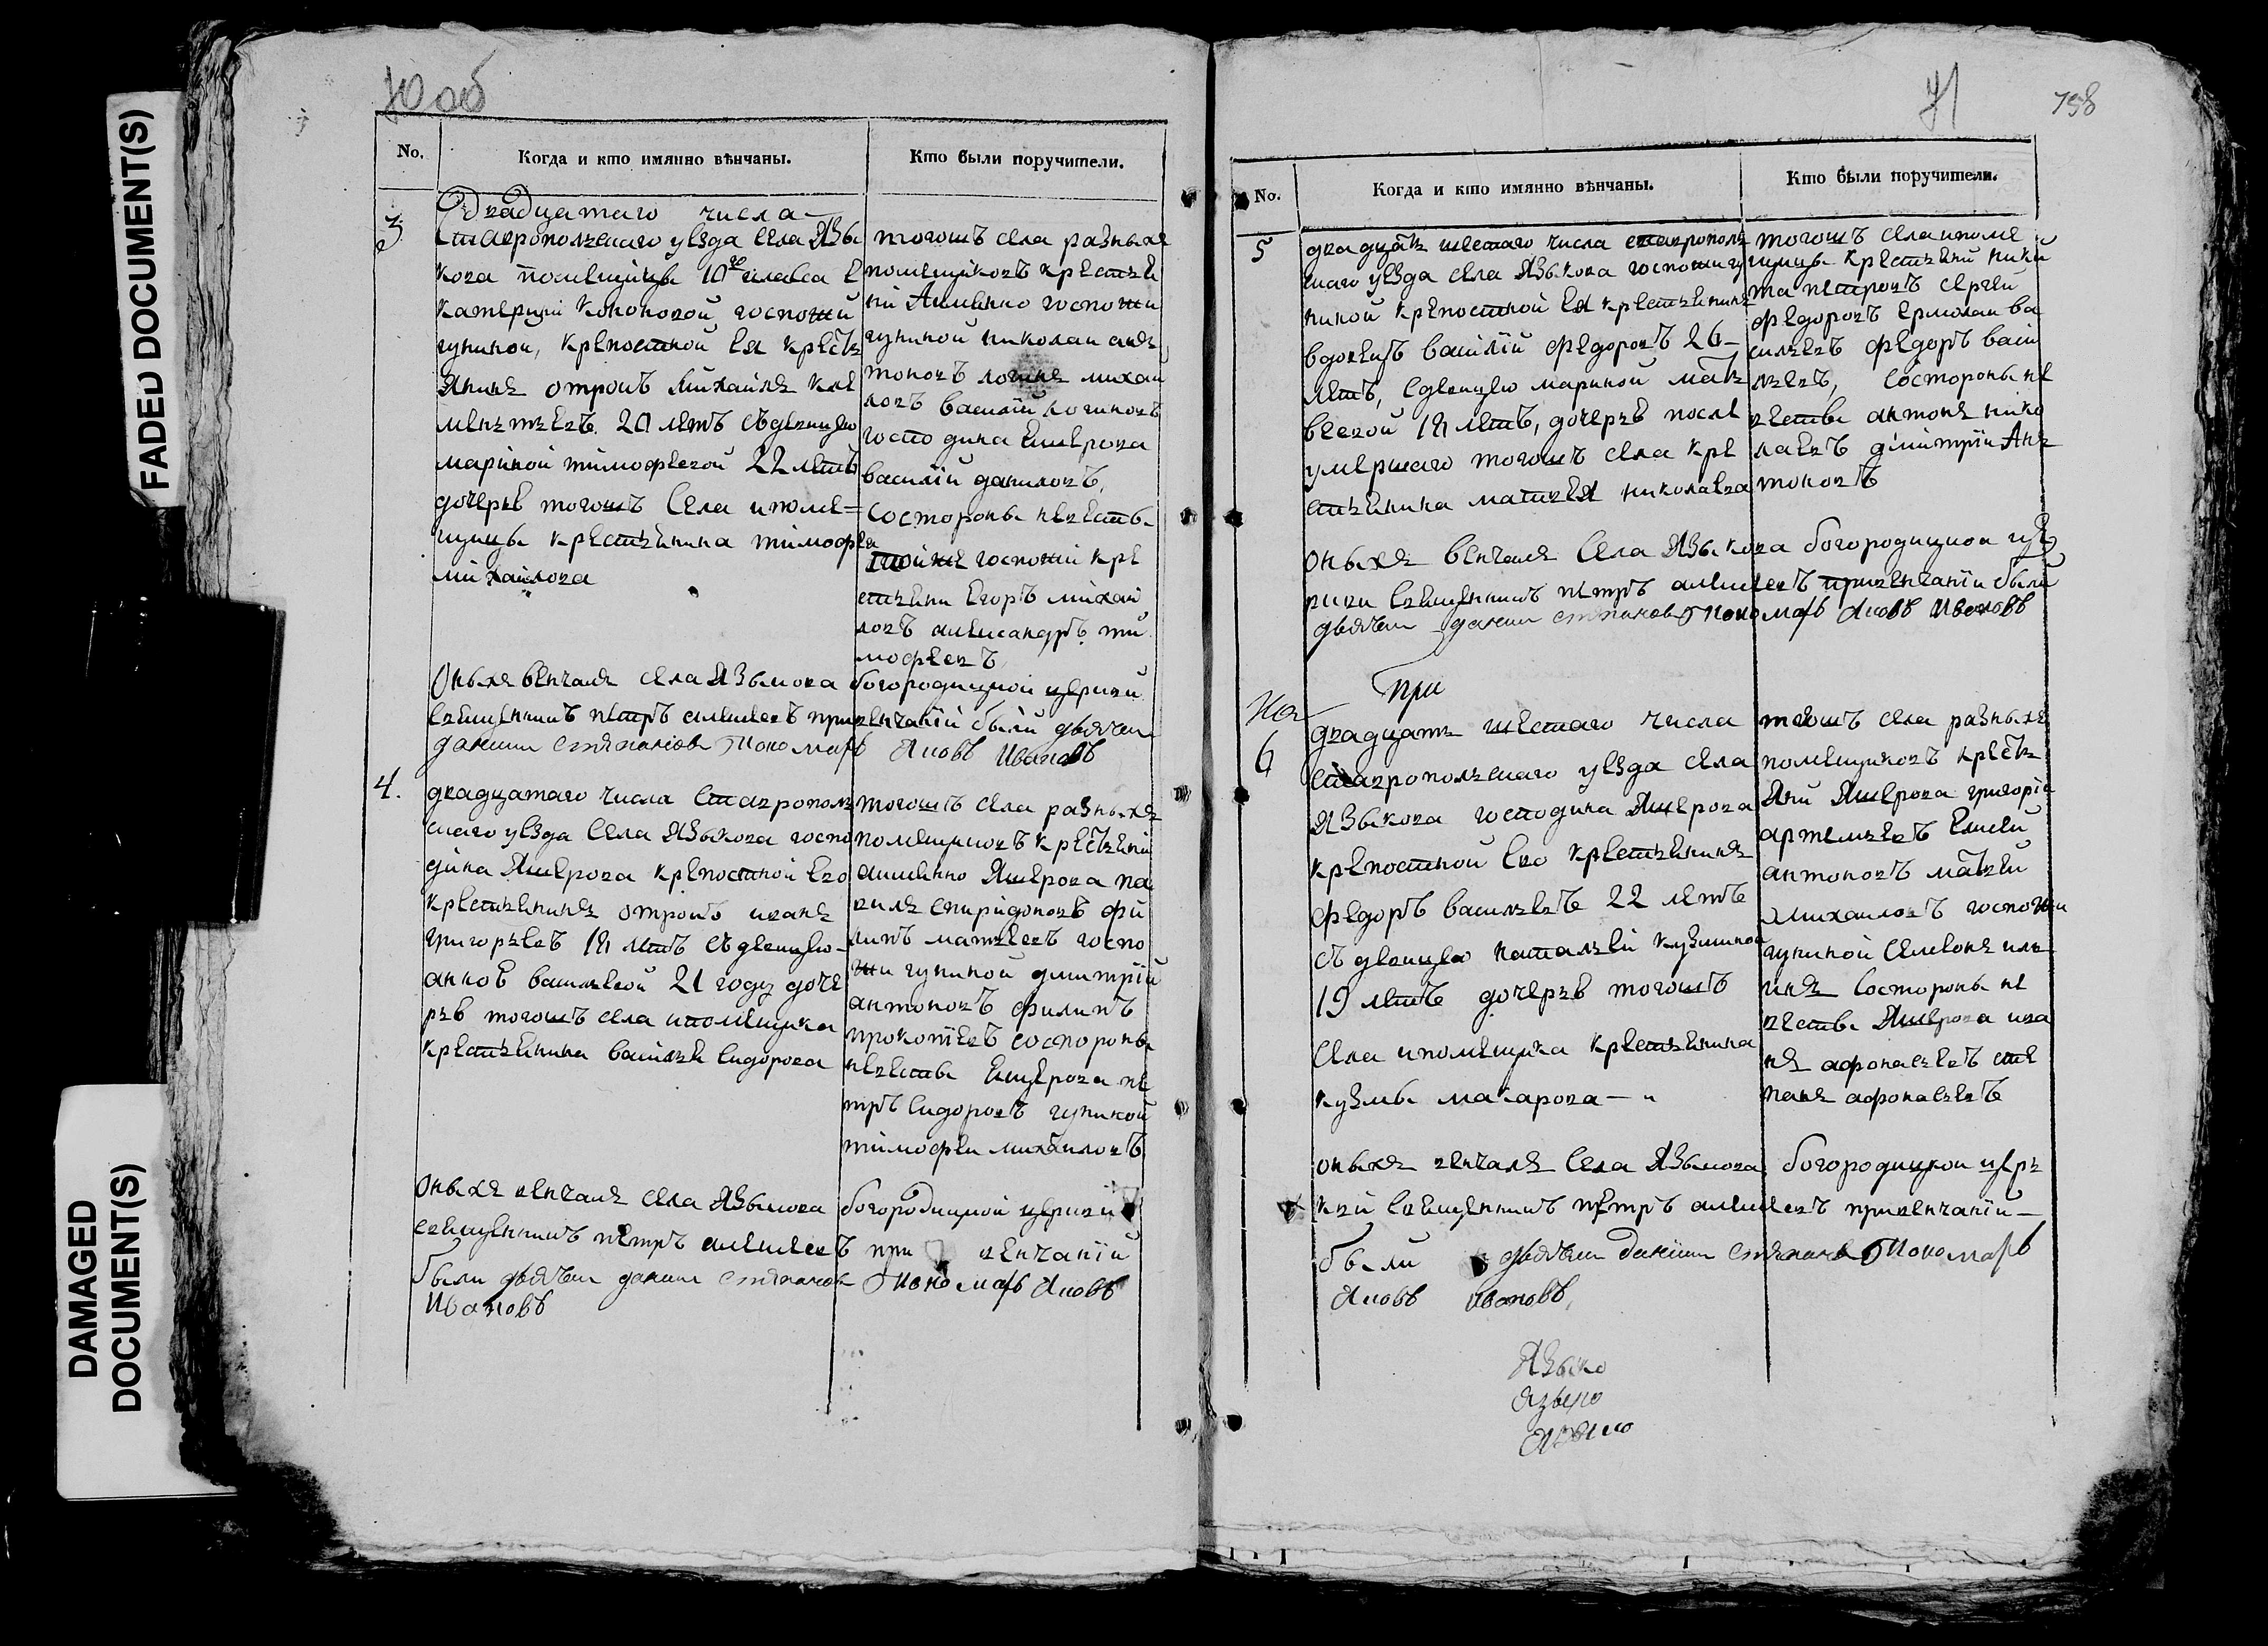 70 об
71
758
FADED DOCUMENT(S)
DAMAGED
DOCUMENT(S)
No.
Когда и кто имянно вѣнчаны.
Кто были поручители.
3
Двадцатаго числа
Ставропольскаго уѣзда села Язы
кова помещицы 10го класса Е
катерины госпожи
гуниной, крепостной ея кресть
янинъ отрокъ михайлъ кле
менътьевъ 20 летъ съ девицею
мариной тимофеевой 22 летъ
дочерью тогожъ села и поме=
щицы крестьянина тимофея
михайлова
тогожъ села разныхъ
помещиковъ крестьян
ни Аименно госпожи
гуниной николай ан
тоновъ логинъ михаи
ловъ василий логиновъ
господина Ешерова
василий даниловъ,
состороны невесты
тойже госпожи кре
стьяни Егоръ михай
ловъ александръ ти
мофеевъ
Оныхъ венчалъ села Языкова богородицкой церкви
священникъ петръ алексеевъ при венчании были дьячекъ
данила степановъ Пономарь Яковъ Ивановъ
4.
двадцатаго числа Ставрополь
скаго уезда села Языкова госпо
дина Яшерова крепостной его
крестьянинъ отрокъ иванъ
григорьевъ 18 летъ съ девицею
анной васильевой 21 году доче
рью тогожъ села и помещика
крестьянина василья сидорова
тогожъ села разныхъ
помещиковъ крестьяни
аименно Яшерова па
вилъ спиридоновъ фи
липъ матвеевъ госпо
жи гуниной дмитрий
антоновъ филипъ
прокопiевъ состороны
невесты Ешерова пе
тръ сидоровъ гуниной
тимофеи михайловъ
Оныхъ венчалъ села Языкова богородицкой церкви
священникъ петръ алексеевъ при венчании
были дьячекъ данила степановъ Пономарь Яковъ
Ивановъ
No.
Когда и кто имянно вѣнчаны.
Кто были поручители.
5
двадцать шестаго числа ставрополь
скаго уезда села Языкова госпожи гу
ниной крепостной ея крестьянинъ
вдовецъ василий федоровъ 26
летъ, сдевицею мариной мат
веевой 18 летъ, дочерью после
умершаго тогожъ села кре
стьянина матвея николаева
тогожъ села и поме
щицы крестьяни ники
та петровъ сергей
федоровъ Ермолаи ва
сильевъ федоръ васи
льевъ, состороны не
весты антонъ нико
лаевъ димитрий Ан
тоновъ
оныхъ венчалъ села Языкова богородицкой цер
ркви священникъ петръ алексеевъ при венчании были
дьячекъ данила степановъ Пономарь Яковъ Ивановъ
При
6
двадцать шестаго числа
ставропольскаго уезда села
Языкова господина Яшерова
крепостной его крестьянинъ
федоръ васильевъ 22 летъ
съ девицею натальей кузминой
19 летъ дочерью тогожъ
села и помещика крестьянина
кузмы макарова
тогожъ села разныхъ
помещиковъ кресть
яни Яшерова григорiи
артемьевъ Елисей
антоновъ матвей
михаиловъ госпожи
гуниной Семенъ иль
инъ состороны не
весты Яшерова ива
нъ афонасьевъ сте
панъ афонасьевъ
оныхъ венчалъ села Языкова богородицкой цер
кви священникъ петръ алексеевъ при венчании
были дьячекъ данила степановъ Пономарь
Яковъ Ивановъ,
Языко